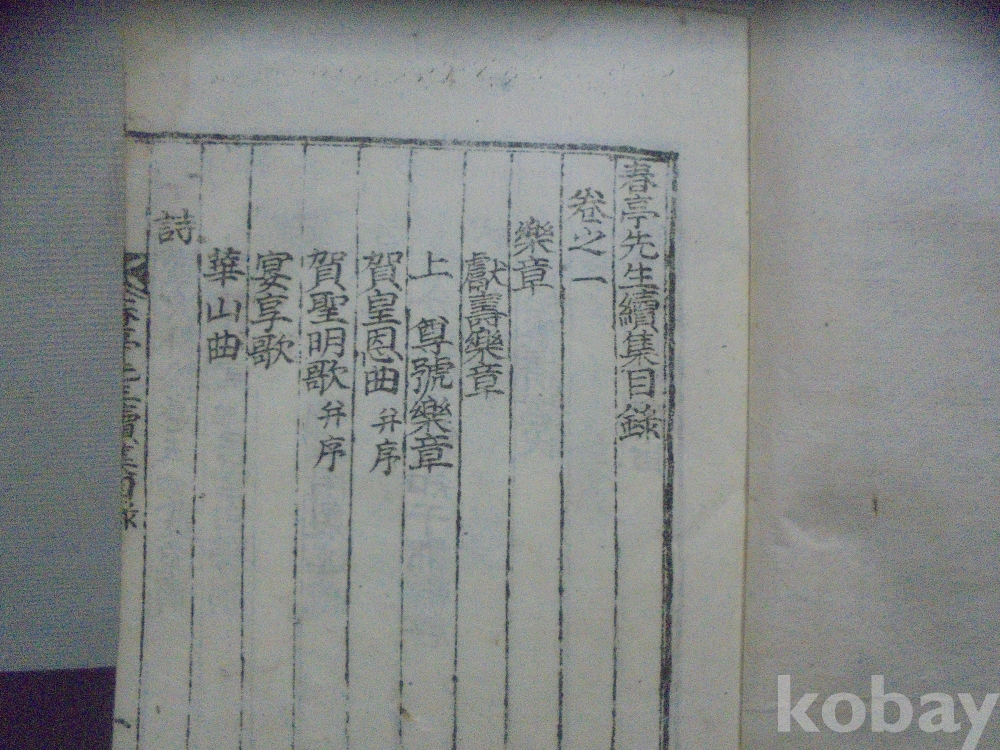 春亭先生續集目錄
卷之一
樂章
獻壽樂章
上 尊號樂章
賀皇恩曲 幷序
賀聖明歌 幷序
宴享歌
華山曲
詩
春亭先生續集目錄
kobay